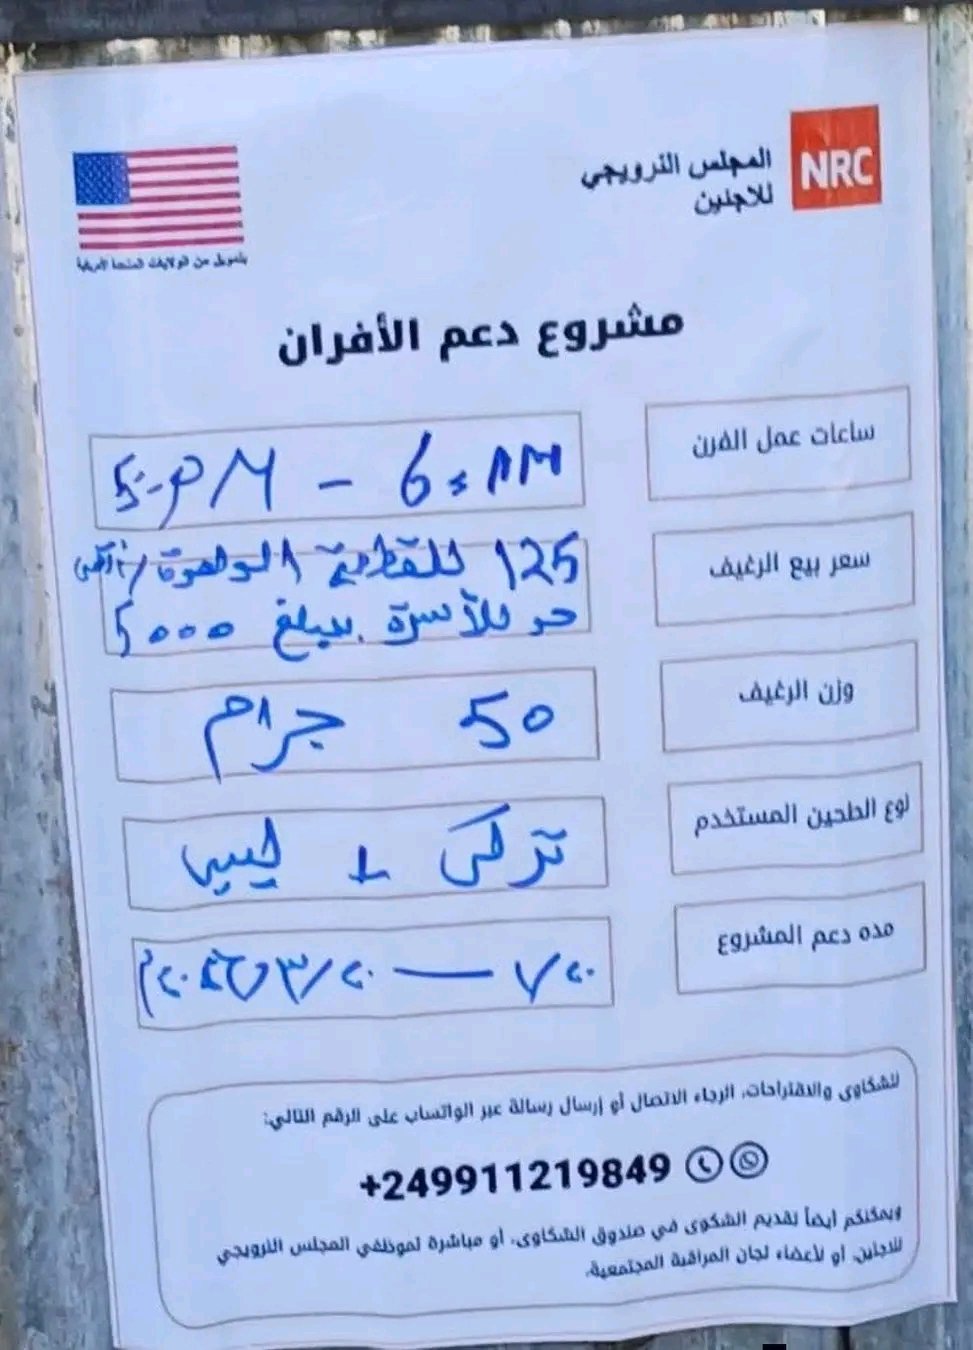 NRC
المجلس النرويجي
للاجئين
بتمويل من الولايات المتحدة الأمريكية
مشروع دعم الأفران
ساعات عمل الفرن
6:AM - 5:PM
سعر بيع الرغيف
125 للقطعة الواحدة / أقصى
حد للأسرة بمبلغ 5000
وزن الرغيف
50 جرام
نوع الطحين المستخدم
تركي + ليبي
مده دعم المشروع
للشكاوى والاقتراحات، الرجاء الاتصال أو إرسال رسالة عبر الواتساب على الرقم التالي:
+249911219849
ويمكنكم ايضاً تقديم الشكوى في صندوق الشكاوى، أو مباشرة لموظفي المجلس النرويجي
للاجئين، أو لأعضاء لجان المراقبة المجتمعية.